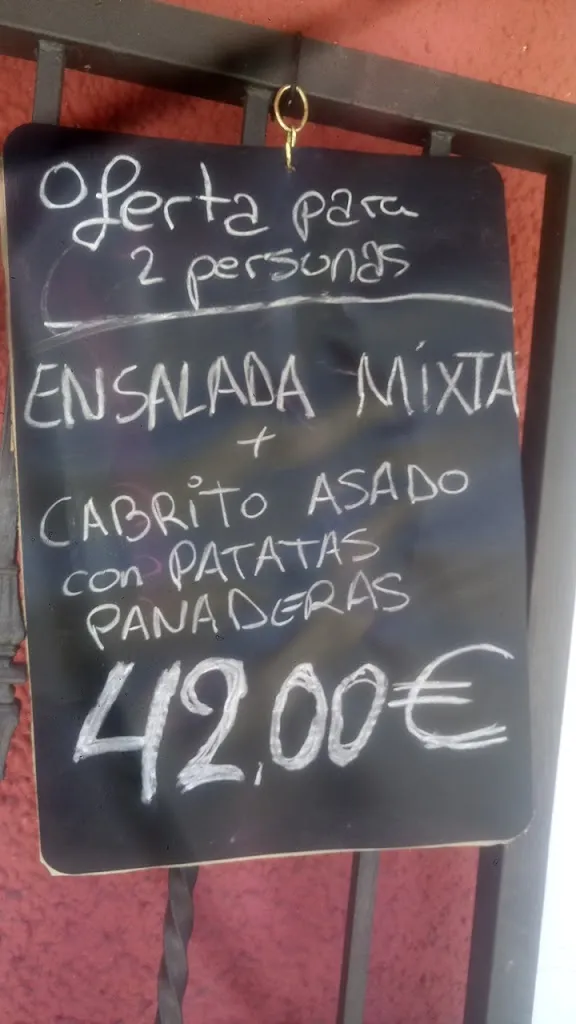 Oferta para
2 personas
ENSALADA MiXTA
+
CABRiTO ASADO
con PATATAS
PANADERAS
42,00€